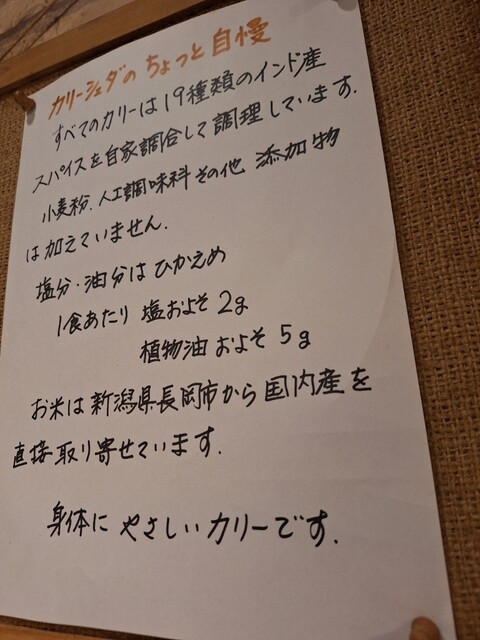 カリーシュダのちょっと自慢
すべてのカリーは19種類のインド産
スパイスを自家調合して調理しています.
小麦粉.人工調味料その他 添加物
は加えていません.
塩分・油分は ひかえめ
1食あたり 塩およそ 2g
植物油 およそ 5g
お米は新潟県長岡市から国内産を
直接取り寄せています.
身体に やさしいカリーです.